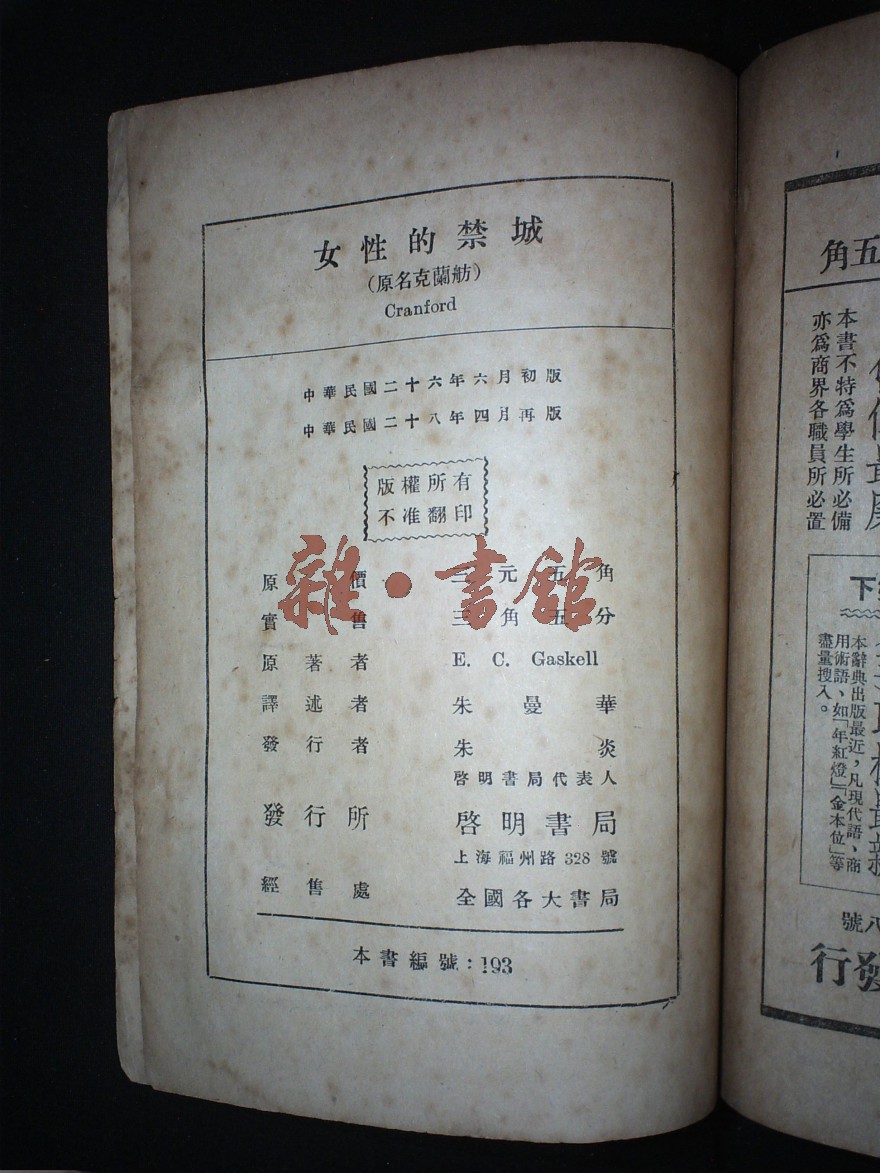 女性的禁城
（原名克蘭舫）
Cranford
中華民國二十六年六月初版
中華民國二十八年四月再版
版權所有
不准翻印
雜·書館
原價 三元五角
實售 三角五分
原著者 E. C. Gaskell
譯述者 朱曼華
發行者 朱炎
啓明書局代表人
發行所 啓明書局
上海福州路328號
經售處 全國各大書局
本書編號：193
五角
本書不特爲學生所必備
亦爲商界各職員所必置
下
本辭典出版最近，凡現代語、商
用術語、如「年紅燈」「金本位」等
盡量搜入。
八號
發行